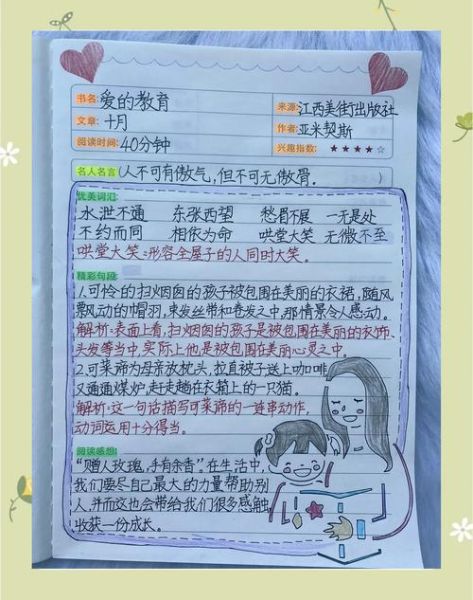 书名: 爱的教育 来源: 江西美街出版社
文章: 十月 作者: 亚米契斯
阅读时间: 40分钟 兴趣指数: ★★★★☆
名人名言(人不可有傲气,但不可无傲骨.
优美词汇:
水泄不通 东张西望 愁眉不展 一无是处
不约而同 相依为命 哄堂大笑 无微不至
哄堂大笑:形容全屋子的人同时大笑。
精彩句段:
1.可怜的扫烟囱的孩子被包围在美丽的衣裙,随风
飘动的帽羽,束发丝带和卷发之中,那情景令人感动。
解析:表面上看,扫烟囱的孩子是被包围在美丽的衣饰、
头发等当中,实际上他是被包围在美丽心灵之中。
2.可莱谛为母亲放枕头,拉直被子送上咖啡
又通通煤炉,赶走趟在衣箱上的一只猫。
解析:这一句话描写可莱谛的一连串动作,
动词运用十分得当。
阅读感想:
“赠人玫瑰,手有余香”在生活中,
我们要尽自己最大的力量帮助别
人,并而这也会带给我们很多感触,
收获一份成长。